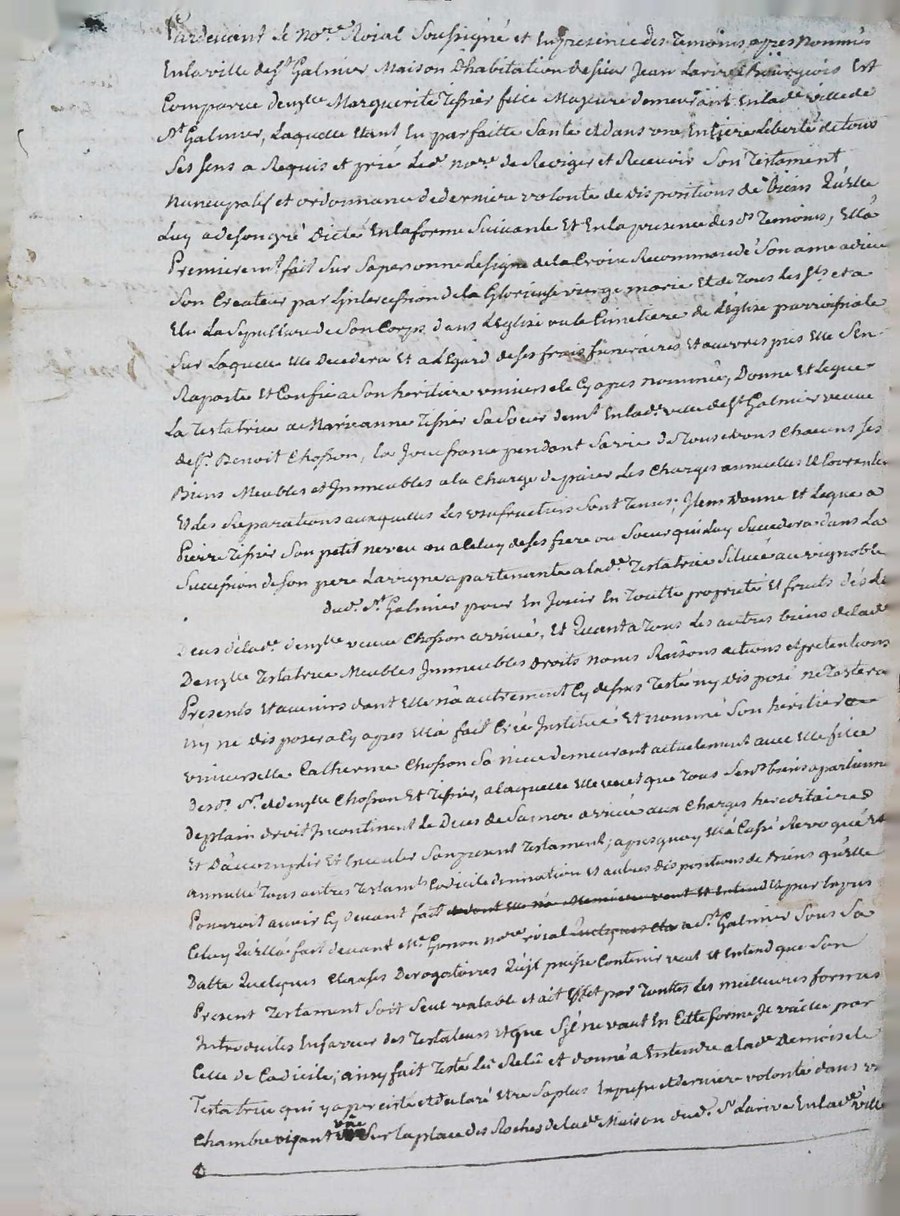 Pardevant le no.re Roial Soussigné et En presence des Temoins apres nommés
En la ville de S.t Galmier Maison D'habitation de sieur Jean Larive Bourgeois Est
Comparue demy.lle Marguerite Tissier fille Majeure demeurant En lad.e ville de
S.t Galmier, Laquelle Etant En parfaitte Santé et dans une Entiere liberté de tous
Ses sens a Requis et prié led. no.re de Rediger et Recevoir Son Testament
Nuncupatif et ordonnance de derniere volonté de dispositions de biens Qu'elle
Luy a de son gré Dicté En la forme Suivante Et En la presence des d.s Temoins, Ella
Premierem.t fait Sur Sa personne le Signe de la Croix Recommandé Son ame a dieu
Son Createur par L'intercession de la Glorieuse vierge marie Et de Tous les S.ts et a
Elu La Sepulture de Son Corps dans L'Eglise ou le Cimetiere de L'Eglise parroissiale
Sur Laquelle Elle Decedera Et a L'Egard de ses frais funeraires Et oeuvres pies Elle S'en
Raporte Et Confie a Son heritiere universelle Cy apres nommée, Donne Et Legue
La Testatrice a Marianne Tissier Sa Soeur dem.t En lad.e ville de S.t Galmier veuve
de S.r Benoit Chosson, la Jouissance pendant Sa vie de Tous et uns Chacuns Ses
Biens Meubles et Immeubles a la Charge de païer Les Charges annuelles Et Courantes
Et des Reparations auxquelles Les Usufructiers Sont Tenus; Item Donne Et Legue a
Pierre Tissier Son petit neveu ou a Celuy de ses frere ou Soeur qui Luy Succedera dans La
Succession de Son pere La vigne apartenante a lad.e Testatrice Située au vignoble
dud. S.t Galmier pour En Jouir En Toutte proprieté Et fruits dès Le
Deces de lad. demy.lle veuve Chosson arrivé, Et Quant a Tous Les autres biens de lad.e
Demy.lle Testatrice Meubles Immeubles droits noms Raisons actions et pretentions
Presents Et avenirs dont Elle n'a autrement Cy dessus Testé ny disposé ne Testera
ny ne disposera Cy apres Ella fait Créé Institué Et nommé Son héritiere
universelle Catherine Chosson Sa niece demeurant actuellement avec Elle fille
desd. S.r et demy.lle Chosson Et Tissier, a laquelle Elle veut que Tous Sesd. biens apartienne
de plain droit Incontinent Le Deces de Sa mere arrivé aux Charges hereditaires
Et D'accomplir Et Executer Son present Testament; apres quoy Ella Cassé Revoqué Et
annullé Tous autres Testam.ts Codicile donnation Et autres dispositions de biens qu'Elle
Pourroit avoir Cy devant fait par Expres
Celuy Qu'Ella fait devant M.e no.re roial a S.t Galmier Sous Sa
Datte Quelques Clauses Derogatoires Qu'il puisse Contenir veut et Entend que Son
Present Testament Soit Seul valable et ait Effet par Touttes les meilleures formes
Introduites En faveur des Testateurs Et que S'il ne vaut En Cette forme Il vaille par
Celle de Codicile; ainsy fait Testé Lû Relû et donné a Entendre a lad.e Demoiselle
Testatrice qui y a percisté et declaré Etre Sa plus Expresse et derniere volonté dans un
Chambre visant Sur la place des Roches de lad.e Maison dud. S.r Larive En lad.e ville